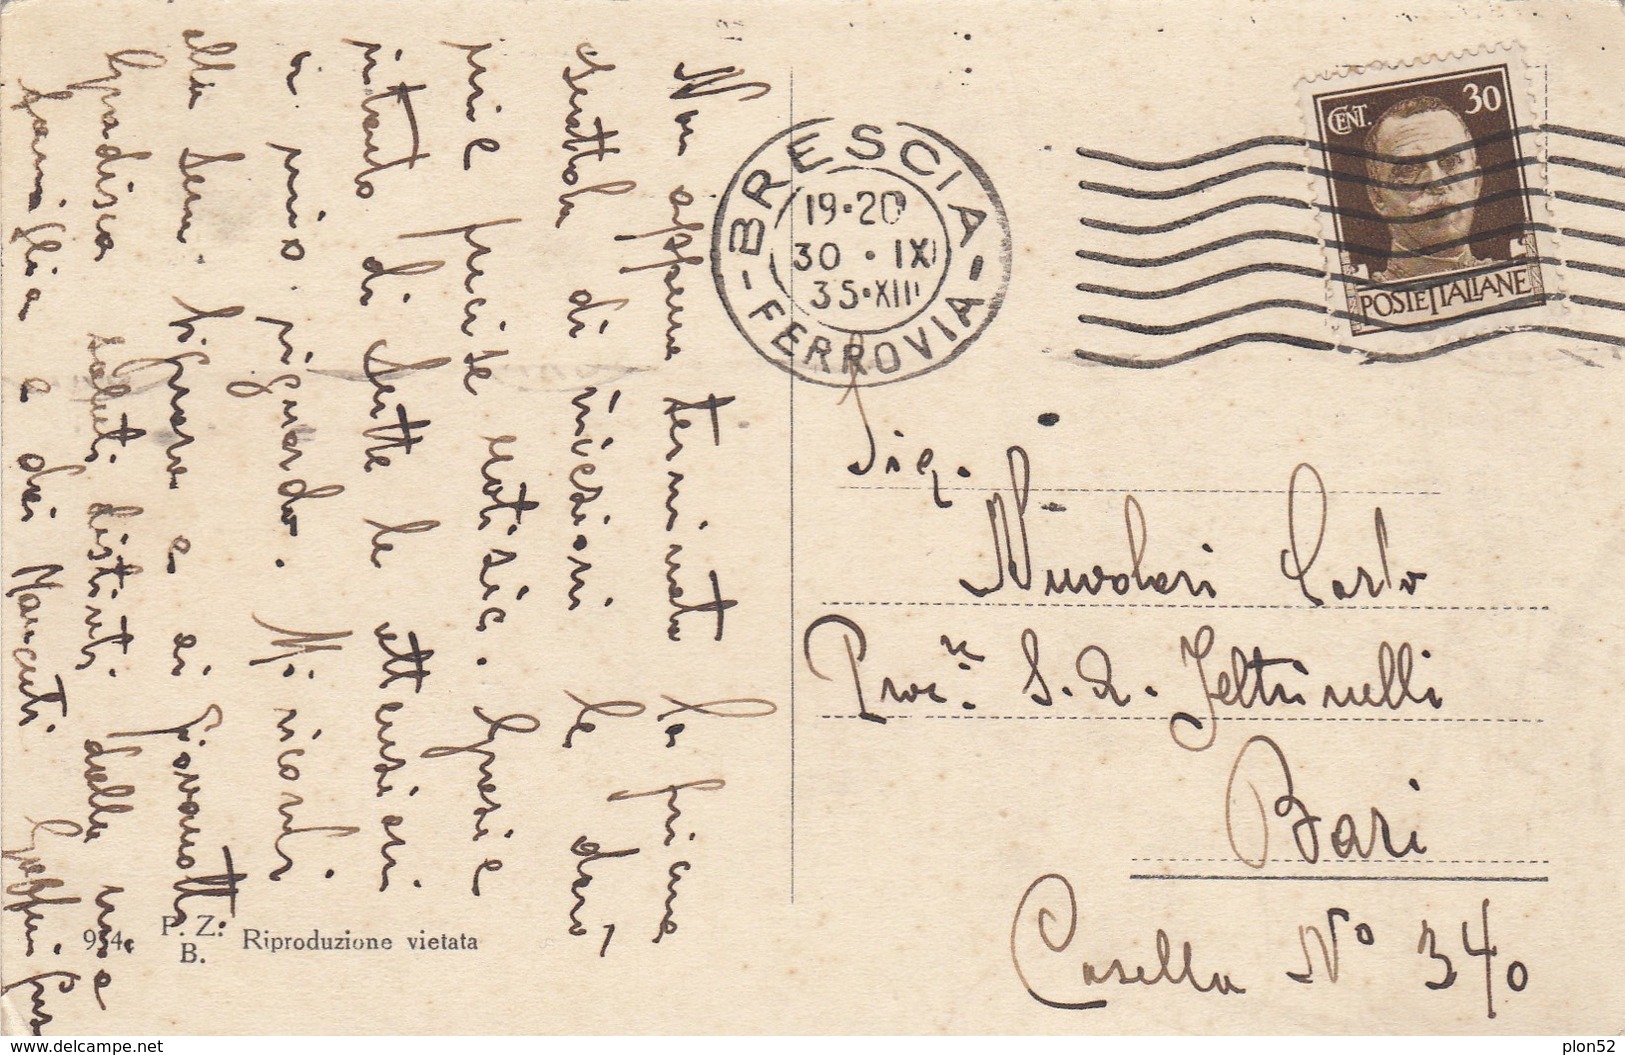 Non appena terminato la prima
scattola di iniezioni le darò
mie precise notizie. Grazie
intanto di tutte le attenzioni
a mio riguardo. Mi ricordi
alla Sua. Signora e ai giovanotti
Gradisca saluti distinti dalla mia
famiglia e dai Mancuti
BRESCIA
19•20
30 • IX
35•XIII
- FERROVIA -
CENT. 30
POSTE ITALIANE
Sig.
Nuvolari Carlo
Proc.re S. A. Feltrinelli
Bari
Casella No 340
954
P. Z.
B.
Riproduzione vietata
www.delcampe.net
plon52